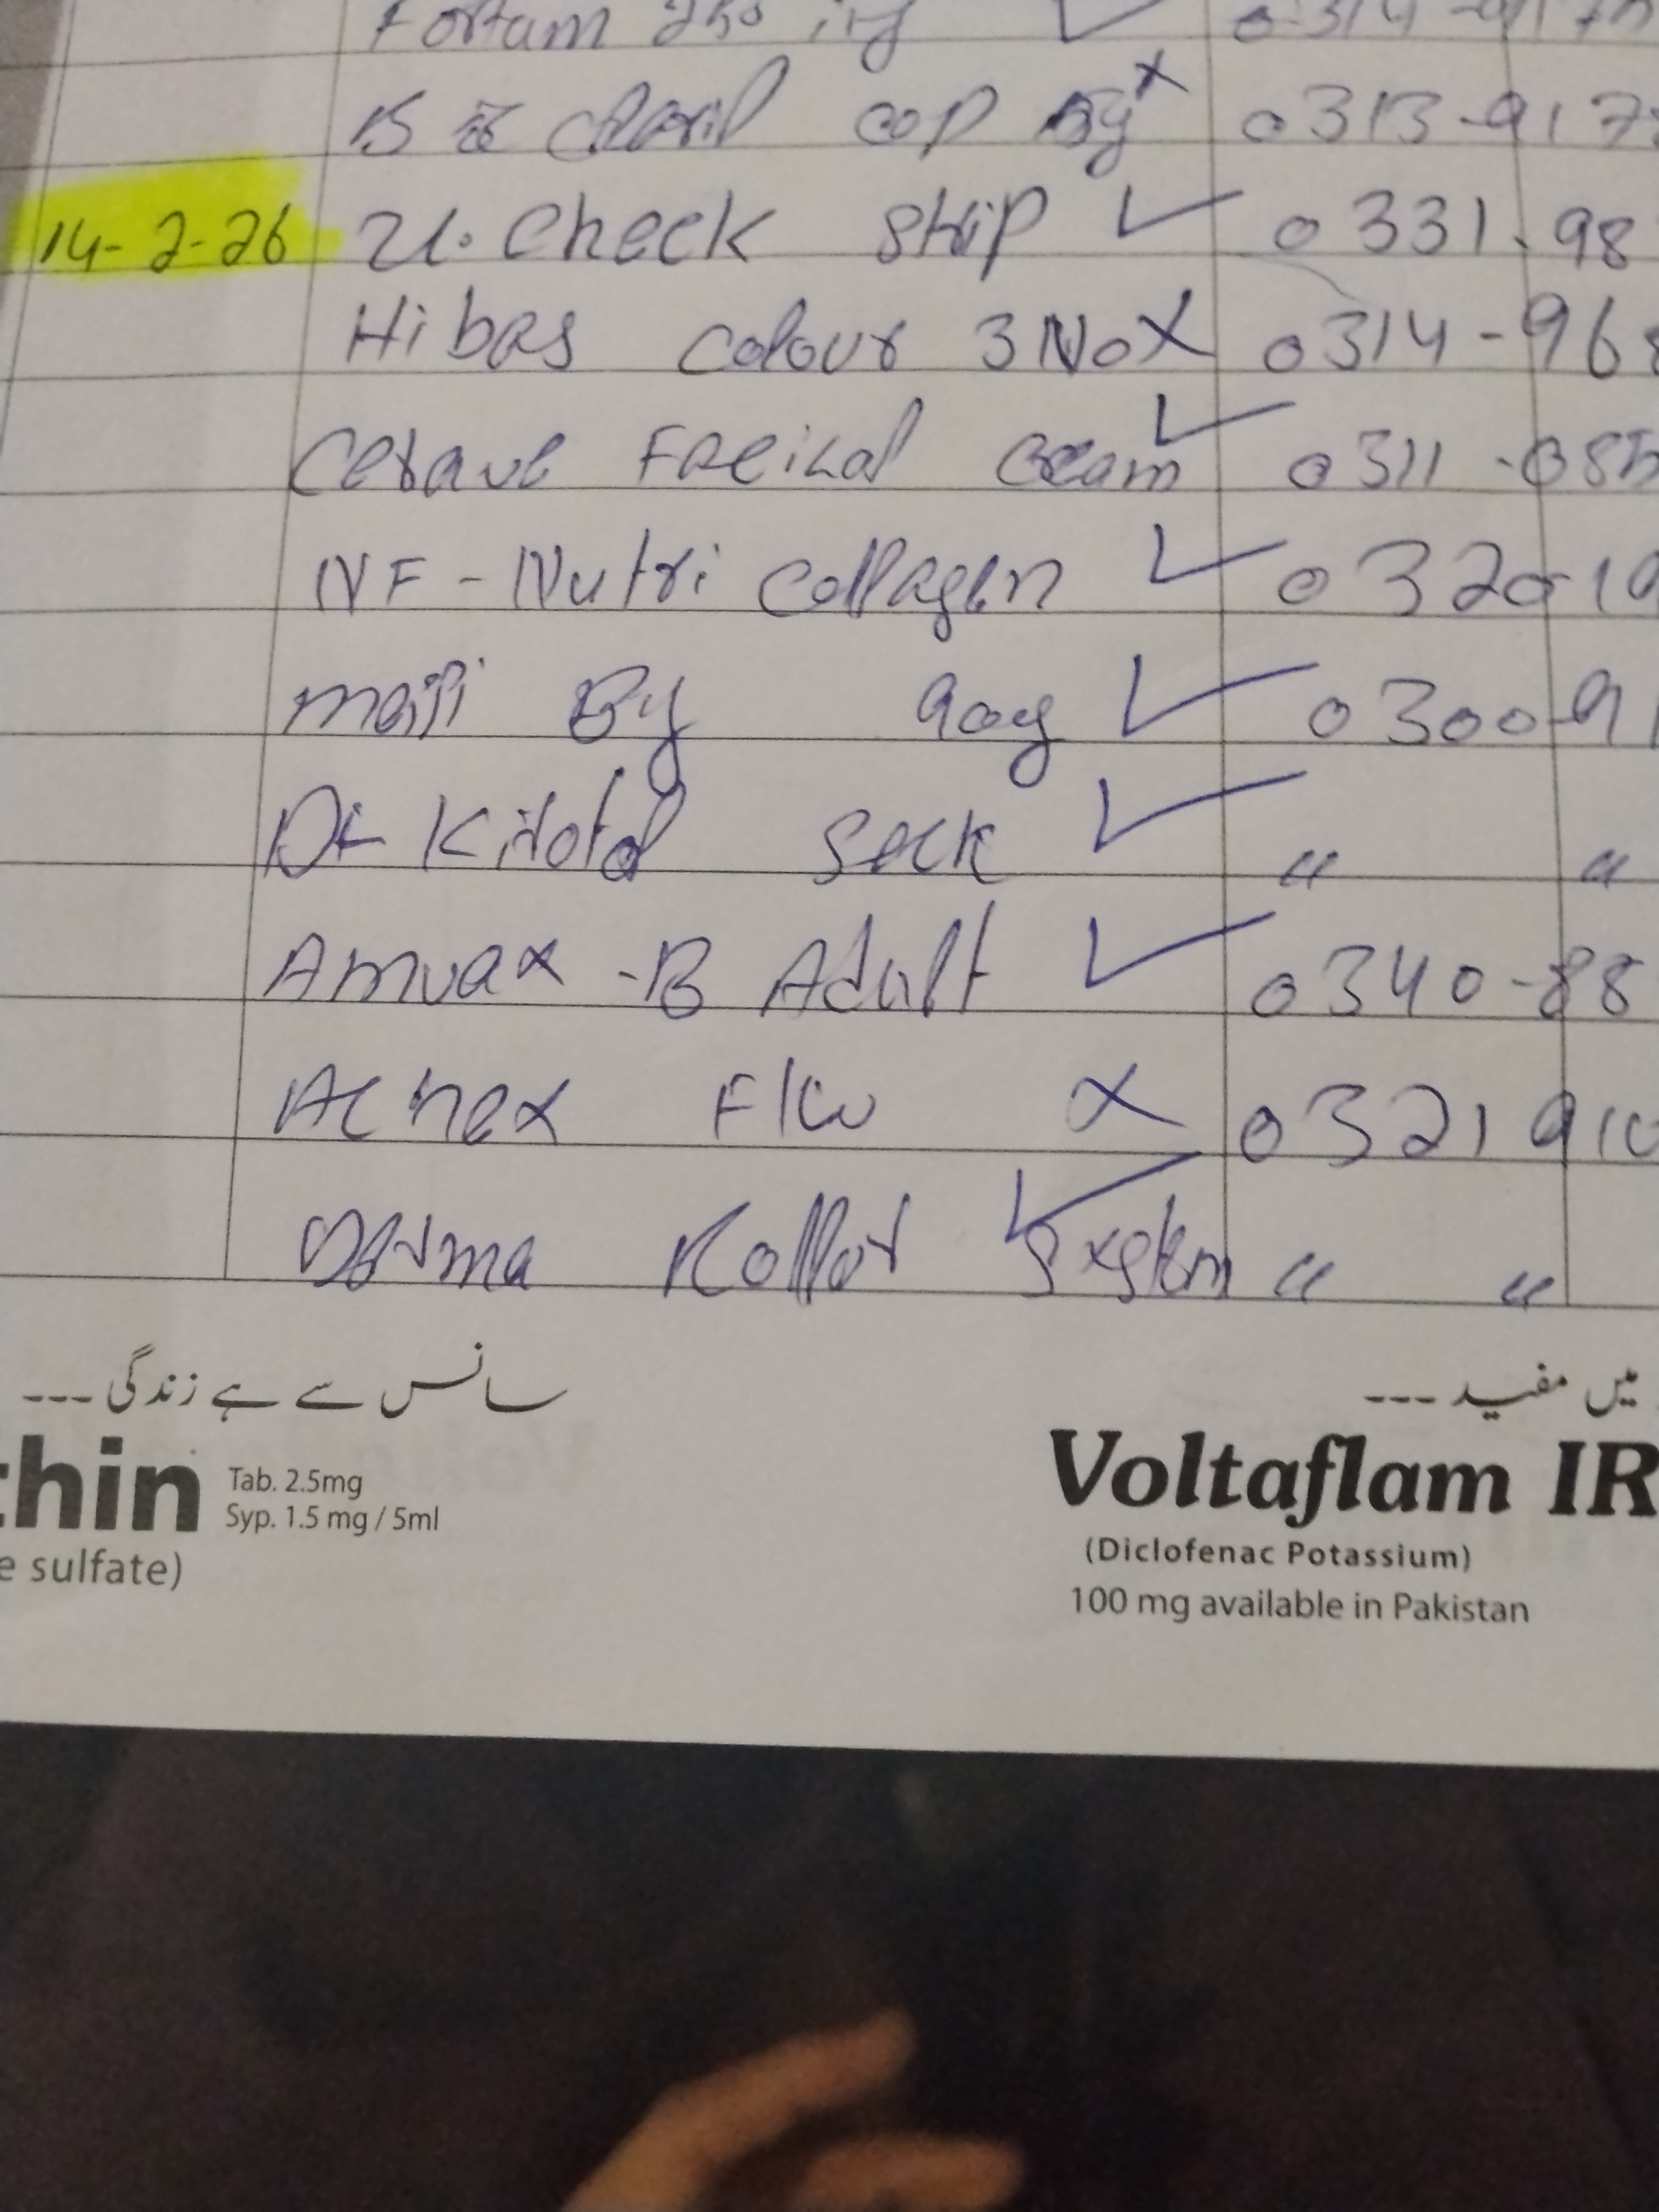 Fortam 250 inj ✓ 0314-917
cap 0313-917
14-2-26 U. Check Strip ✓ 0331-98
Hibas Colour 3 No X 0314-968
Cerave Faeical Cream ✓ 0311-085
NF-Nutri Collagen ✓ 0320-19
meiji By 90g ✓ 0300-91
Kitotal Seck ✓ " "
Amvax-B Adult ✓ 0340-88
Acnex F/W X 0321 910
Derma Roller ✓ System " "
سانس سے ہے زندگی ---
میں مفید ---
thin Tab. 2.5mg
Syp. 1.5 mg / 5ml
e sulfate)
Voltaflam IR
(Diclofenac Potassium)
100 mg available in Pakistan